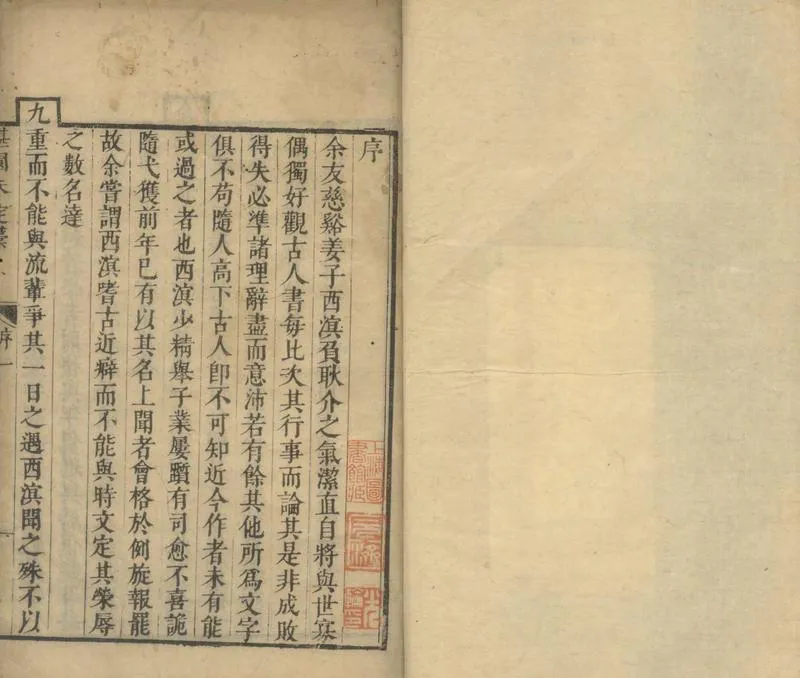 序
余友慈谿姜子西溟負耿介之氣潔直自將與世寡
偶獨好觀古人書每比次其行事而論其是非成敗
得失必準諸理辭盡而意沛若有餘其他所爲文字
俱不苟隨人高下古人卽不可知近今作者未有能
或過之者也西溟少精舉子業屢躓有司愈不喜詭
隨弋獲前年已有以其名上聞者會格於例旋報罷
故余嘗謂西溟嗜古近癖而不能與時文定其榮辱
之數名達
九重而不能與流輩爭其一日之遇西溟聞之殊不以
序一
上海圖書館藏